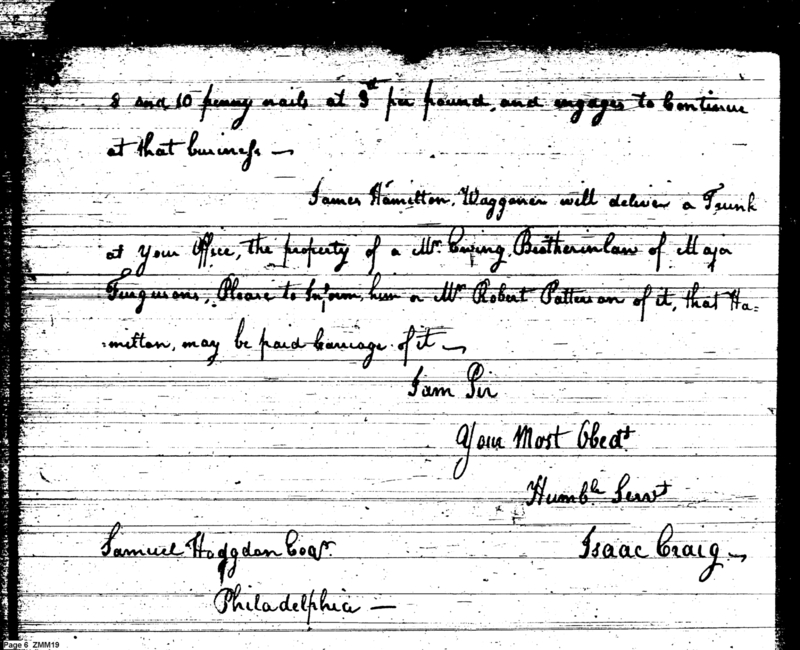 8 and 10 penny nails at 9d per pound, and engages to Continue
at that business —
James Hamilton, Waggoner will deliver a Trunk
at your Office, the property of a Mr. Ewing, Brotherinlaw of Major
Fergusons, Please to Inform him or Mr. Robert Patterson of it, that Ha=
=milton, may be paid Carriage of it —
I am Sir
Your Most Obedt
Humble Servt
Isaac Craig —
Samuel Hodgdon Esqr
Philadelphia —
Page 6 ZMM19